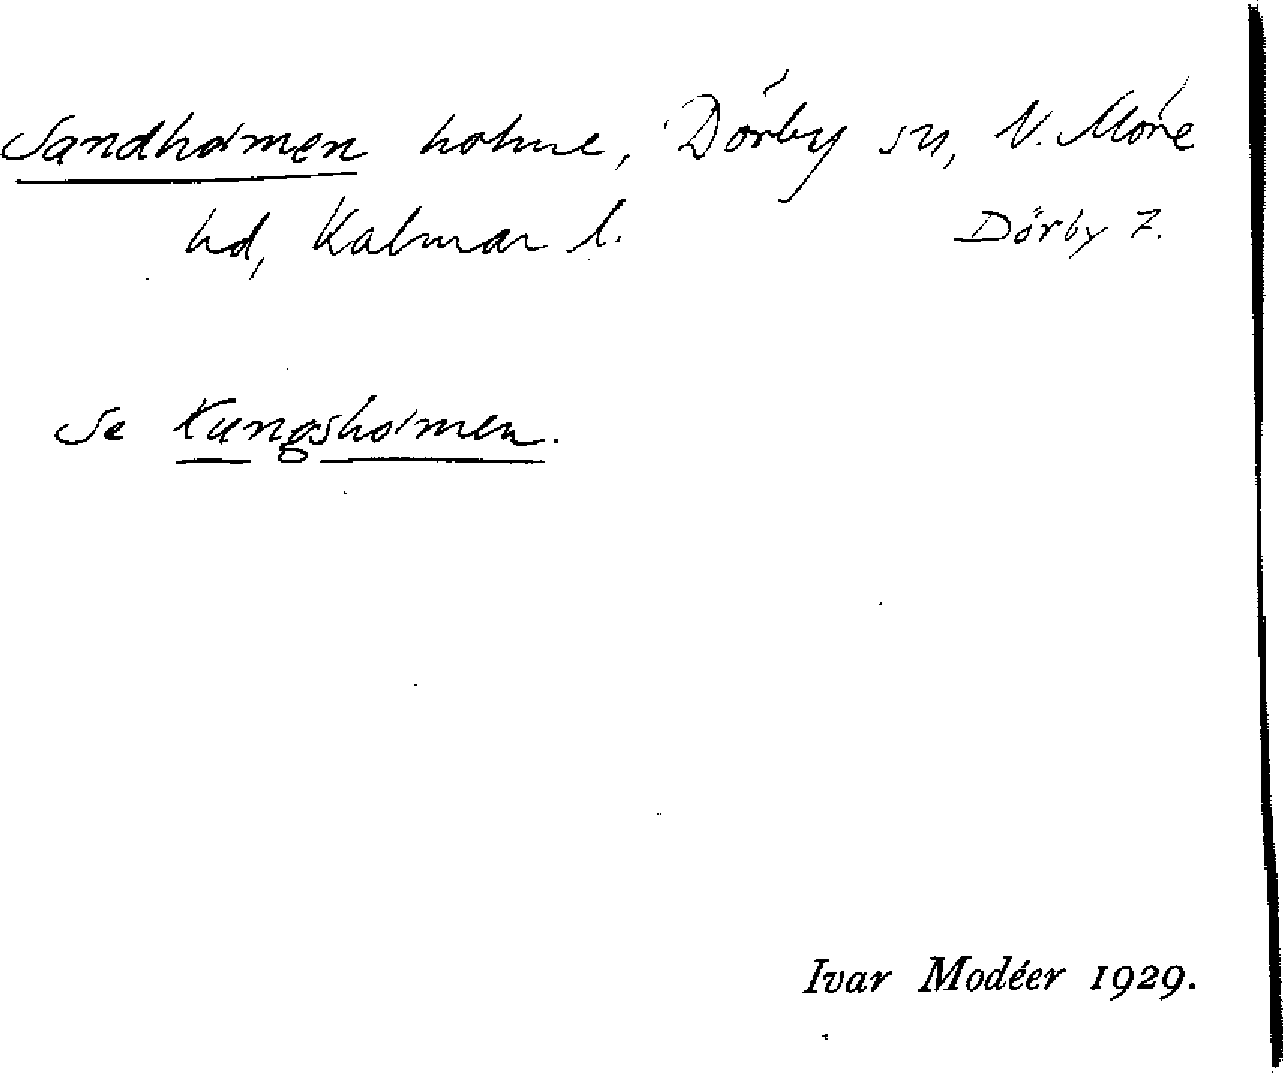 Sandholmen holme, Dörby sn, N. Möre
hd, Kalmar l.
Dörby Z.
Se Kungsholmen.
Ivar Modéer 1929.